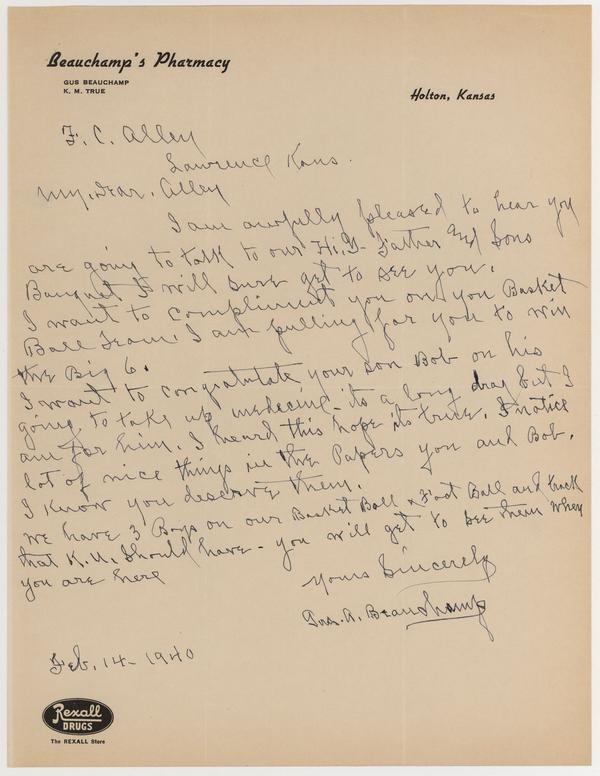 Beauchamp's Pharmacy
GUS BEAUCHAMP
K. M. TRUE
Holton, Kansas
F. C. Alley
Lawrence Kans.
My. Dear. Alley
I am awfully pleased to hear you
are going to talk to our Hi.Y- Father and Sons
Banquet I will sure get to see you.
I want to compliment you on you Basket
Ball Team. I am pulling for you to win
the Big 6.
I want to congratulate your son Bob on his
going to take up medecine - its a long drag but I
am for him. I heard this hope its true. I notice
lot of nice things in the Papers you and Bob.
I know you deserve them.
We have 3 Boys on our Basket Ball & Foot Ball and track
that K.U. Should have - you will get to see them when
you are here
Yours Sincerely
A. Beauchamp
Feb. 14 - 1940
Rexall
DRUGS
The REXALL Store